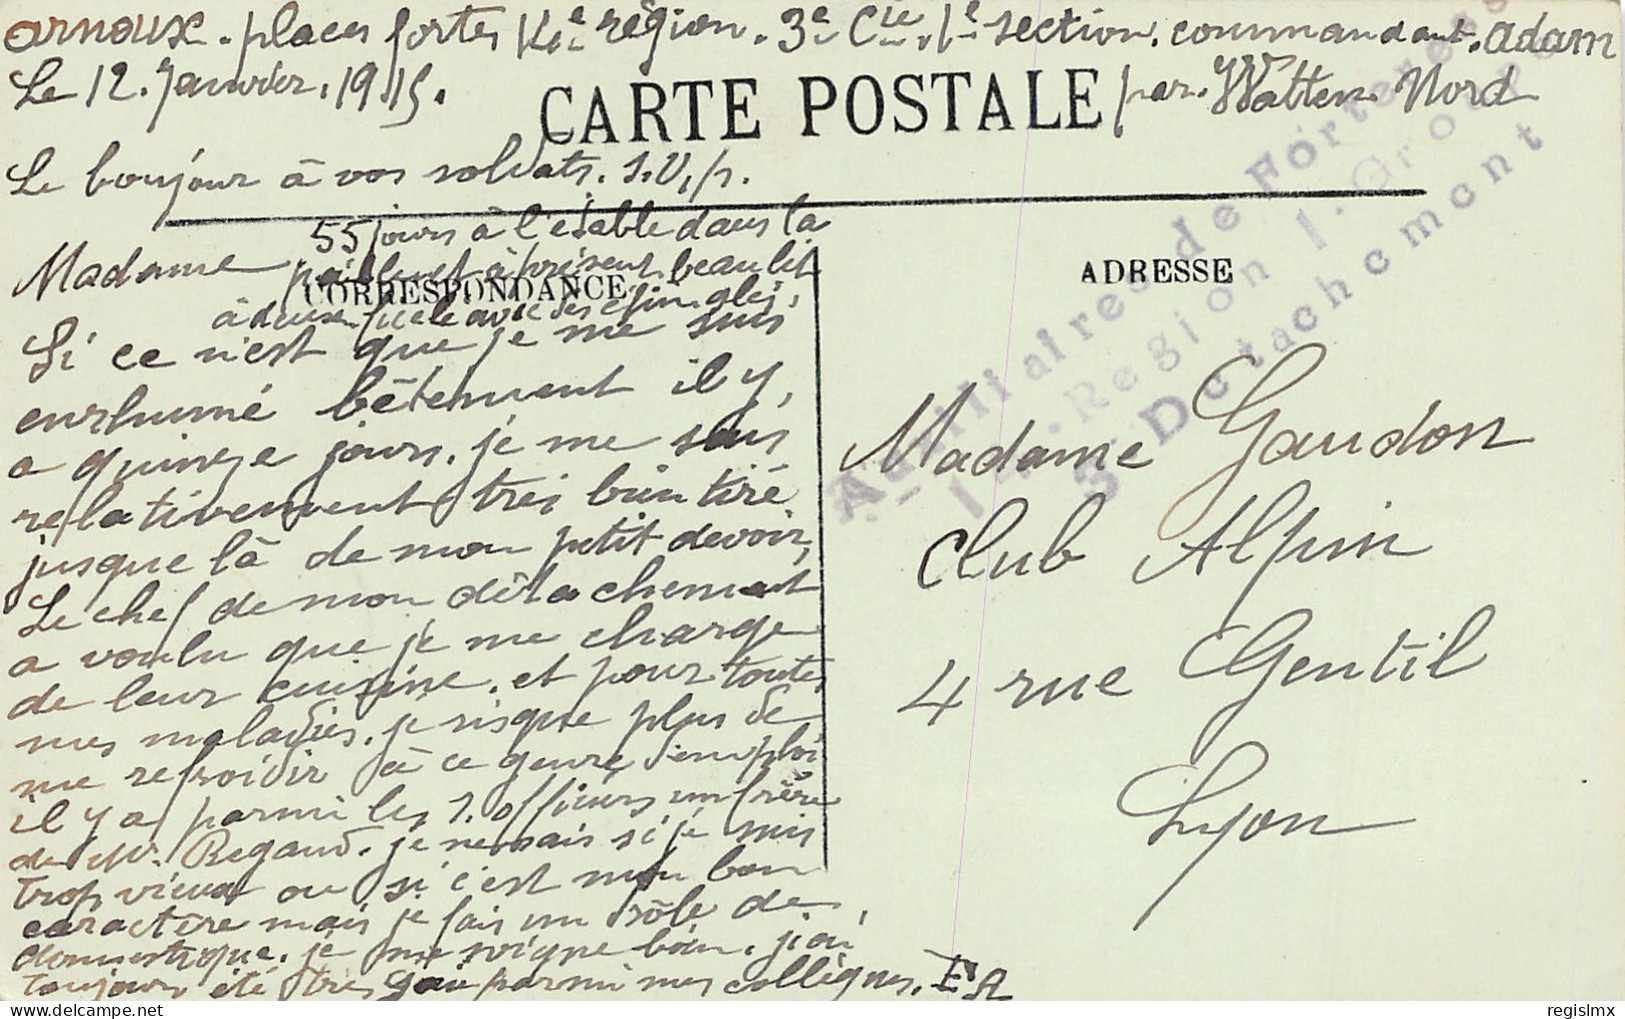 arnoux. places fortes 14e région. 3e Cie. 1e section. commandant. adam
Le 12. Janvier. 1915. par. Watten Nord
CARTE POSTALE
Le boujour à vos soldats. S.V.p.
55 jours à l'étable dans la
paille et à présent beau lit
à deux. ficelé avec des épingles.
CORRESPONDANCE
ADRESSE
Madame
Si ce n'est que je me suis
enrhumé bêtement il y,
a quinze jours. je me suis
relativement très bien tiré
jusque là de mon petit devoir,
Le chef de mon détachement
a voulu que je me charge
de leur cuisine. et pour toutes
mes maladies. je risque plus de
me refroidir à ce genre d'emploi
il y a parmi les s. officiers un frère
de Mr. Regaud. je ne sais si je suis
trop vieux ou si c'est mon bon
caractère mais je fais un rôle de
domestique. je me soigne bien. j'ai
toujours été très gai parmi mes collègues. EA
Auxiliaires de Forteresse
14. Region 1. Groupe
3. Detachement
Madame Gaudon
Club Alpin
4 rue Gentil
Lyon
regislmx